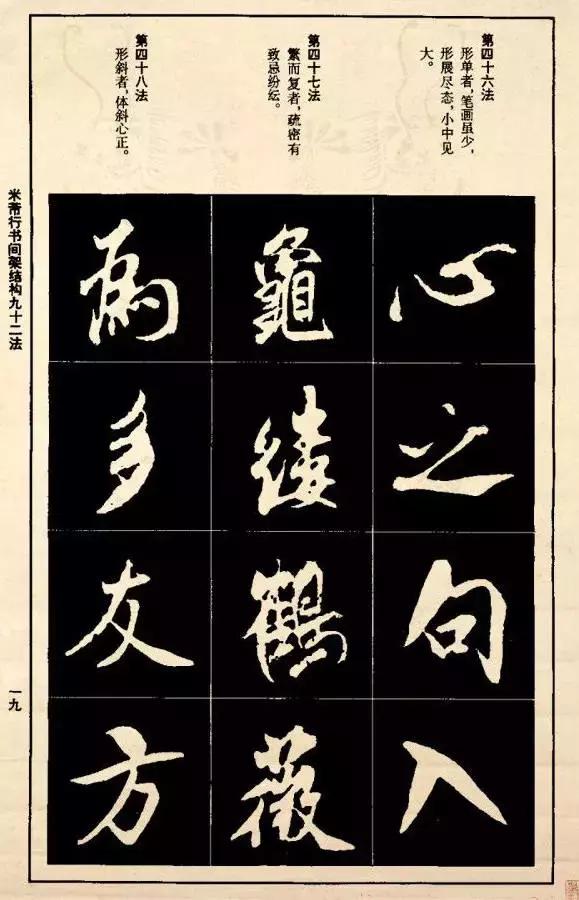 第四十六法
形单者，笔画虽少，
形展尽态，小中见
大。
第四十七法
繁而复者，疏密有
致忌纷纭。
第四十八法
形斜者，体斜心正。
心之句入
龜鶴薇
為多友方
米芾行书间架结构九十二法
一九